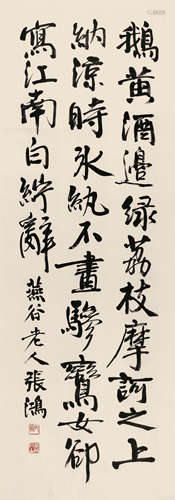 鵝黃酒邊綠荔枝摩訶之上
納涼時冰紈不畫驂鸞女卻
寫江南白紵辭
燕谷老人張鴻